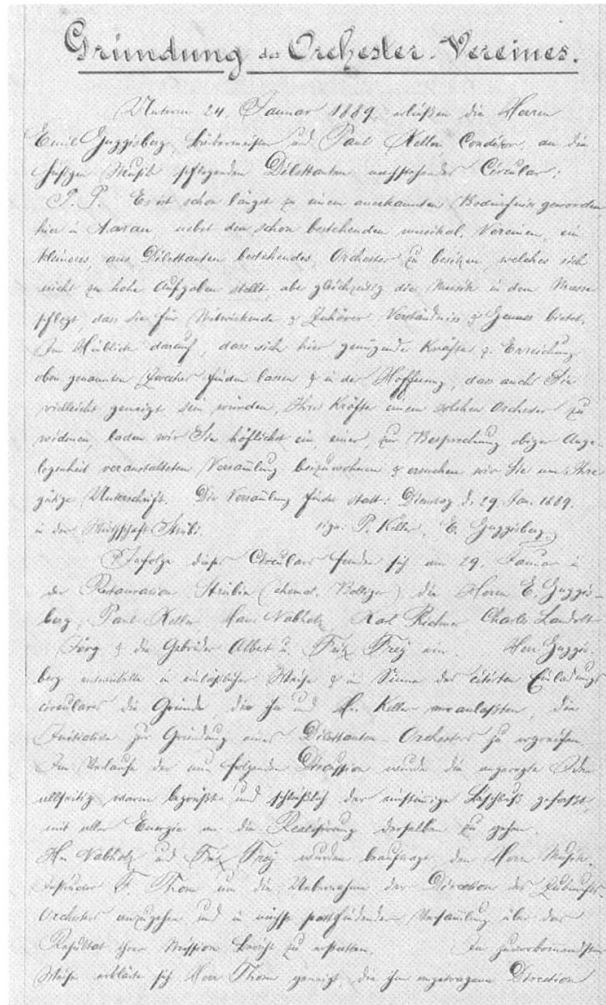 Gründung des Orchester-Vereines.
Unterm 24. Januar 1889 erließen die Herren
Emil Guggisberg, und Paul Keller Conditor, an die
hiesigen Musik pflegenden Dilettanten nachstehendes Circular:
P. P. Es ist schon längst zu einem anerkannten Bedürfniss geworden
hier in Aarau nebst den schon bestehenden musikal. Vereinen, ein
kleineres, aus Dilettanten bestehendes, Orchester zu besitzen, welches sich
nicht zu hohe Aufgaben stellt, aber gleichzeitig die Musik in dem Masse
pflegt, dass sie für Mitwirkende & Zuhörer Verständniss & Genuss bietet.
Im Hinblick darauf, dass sich hier genügende Kräfte z. Erreichung
oben genannten Zweckes finden lassen & in der Hoffnung, dass auch Sie
vielleicht geneigt sein würden, Ihre Kräfte einem solchen Orchester zu
widmen, laden wir Sie höflichst ein einer, zur Besprechung obiger Ange-
legenheit veranstalteten Versammlung beizuwohnen & ersuchen wir Sie um Ihre
gütige Unterschrift. Die Versammlung findet statt: Dienstag d. 29. Jan. 1889.
in der Wirthschaft Strübi. sign: P. Keller, E. Guggisberg.
Zufolge dieses Circulars fanden sich am 29. Januar in
der Restauration Strübin (ehemal. Bolliger) die Herren E. Guggis-
berg, Paul Keller Hans Nabholz, Karl Richner Charles Landolt
Jörg & die Gebrüder Albert u. Fritz Frey ein. Herr Guggis-
berg entwickelte in einläßlicher Weise & im Sinne des citirten Einladungs
circulars die Gründe, die ihn und Hrn. Keller veranlaßten, die
Initiative zur Gründung eines Dilettanten-Orchesters zu ergreifen.
Im Verlaufe der nun folgenden Discussion wurde die angeregte Idee
allseitig warm begrüßt und schließlich der einstimmige Beschluß gefaßt,
mit aller Energie an die Realisirung derselben zu gehen.
Hr. Nabholz und Fritz Frey wurden beauftragt, den Herrn Musik-
director F. Thom um die Uebernahme der Direction des Zukunfts-
Orchesters anzugehen und in nächst stattfindender Versammlung über das
Resultat ihrer Mission Bericht zu erstatten. In zuvorkommendster
Weise erklärte sich Herr Thom geneigt, die ihm angetragene Direction